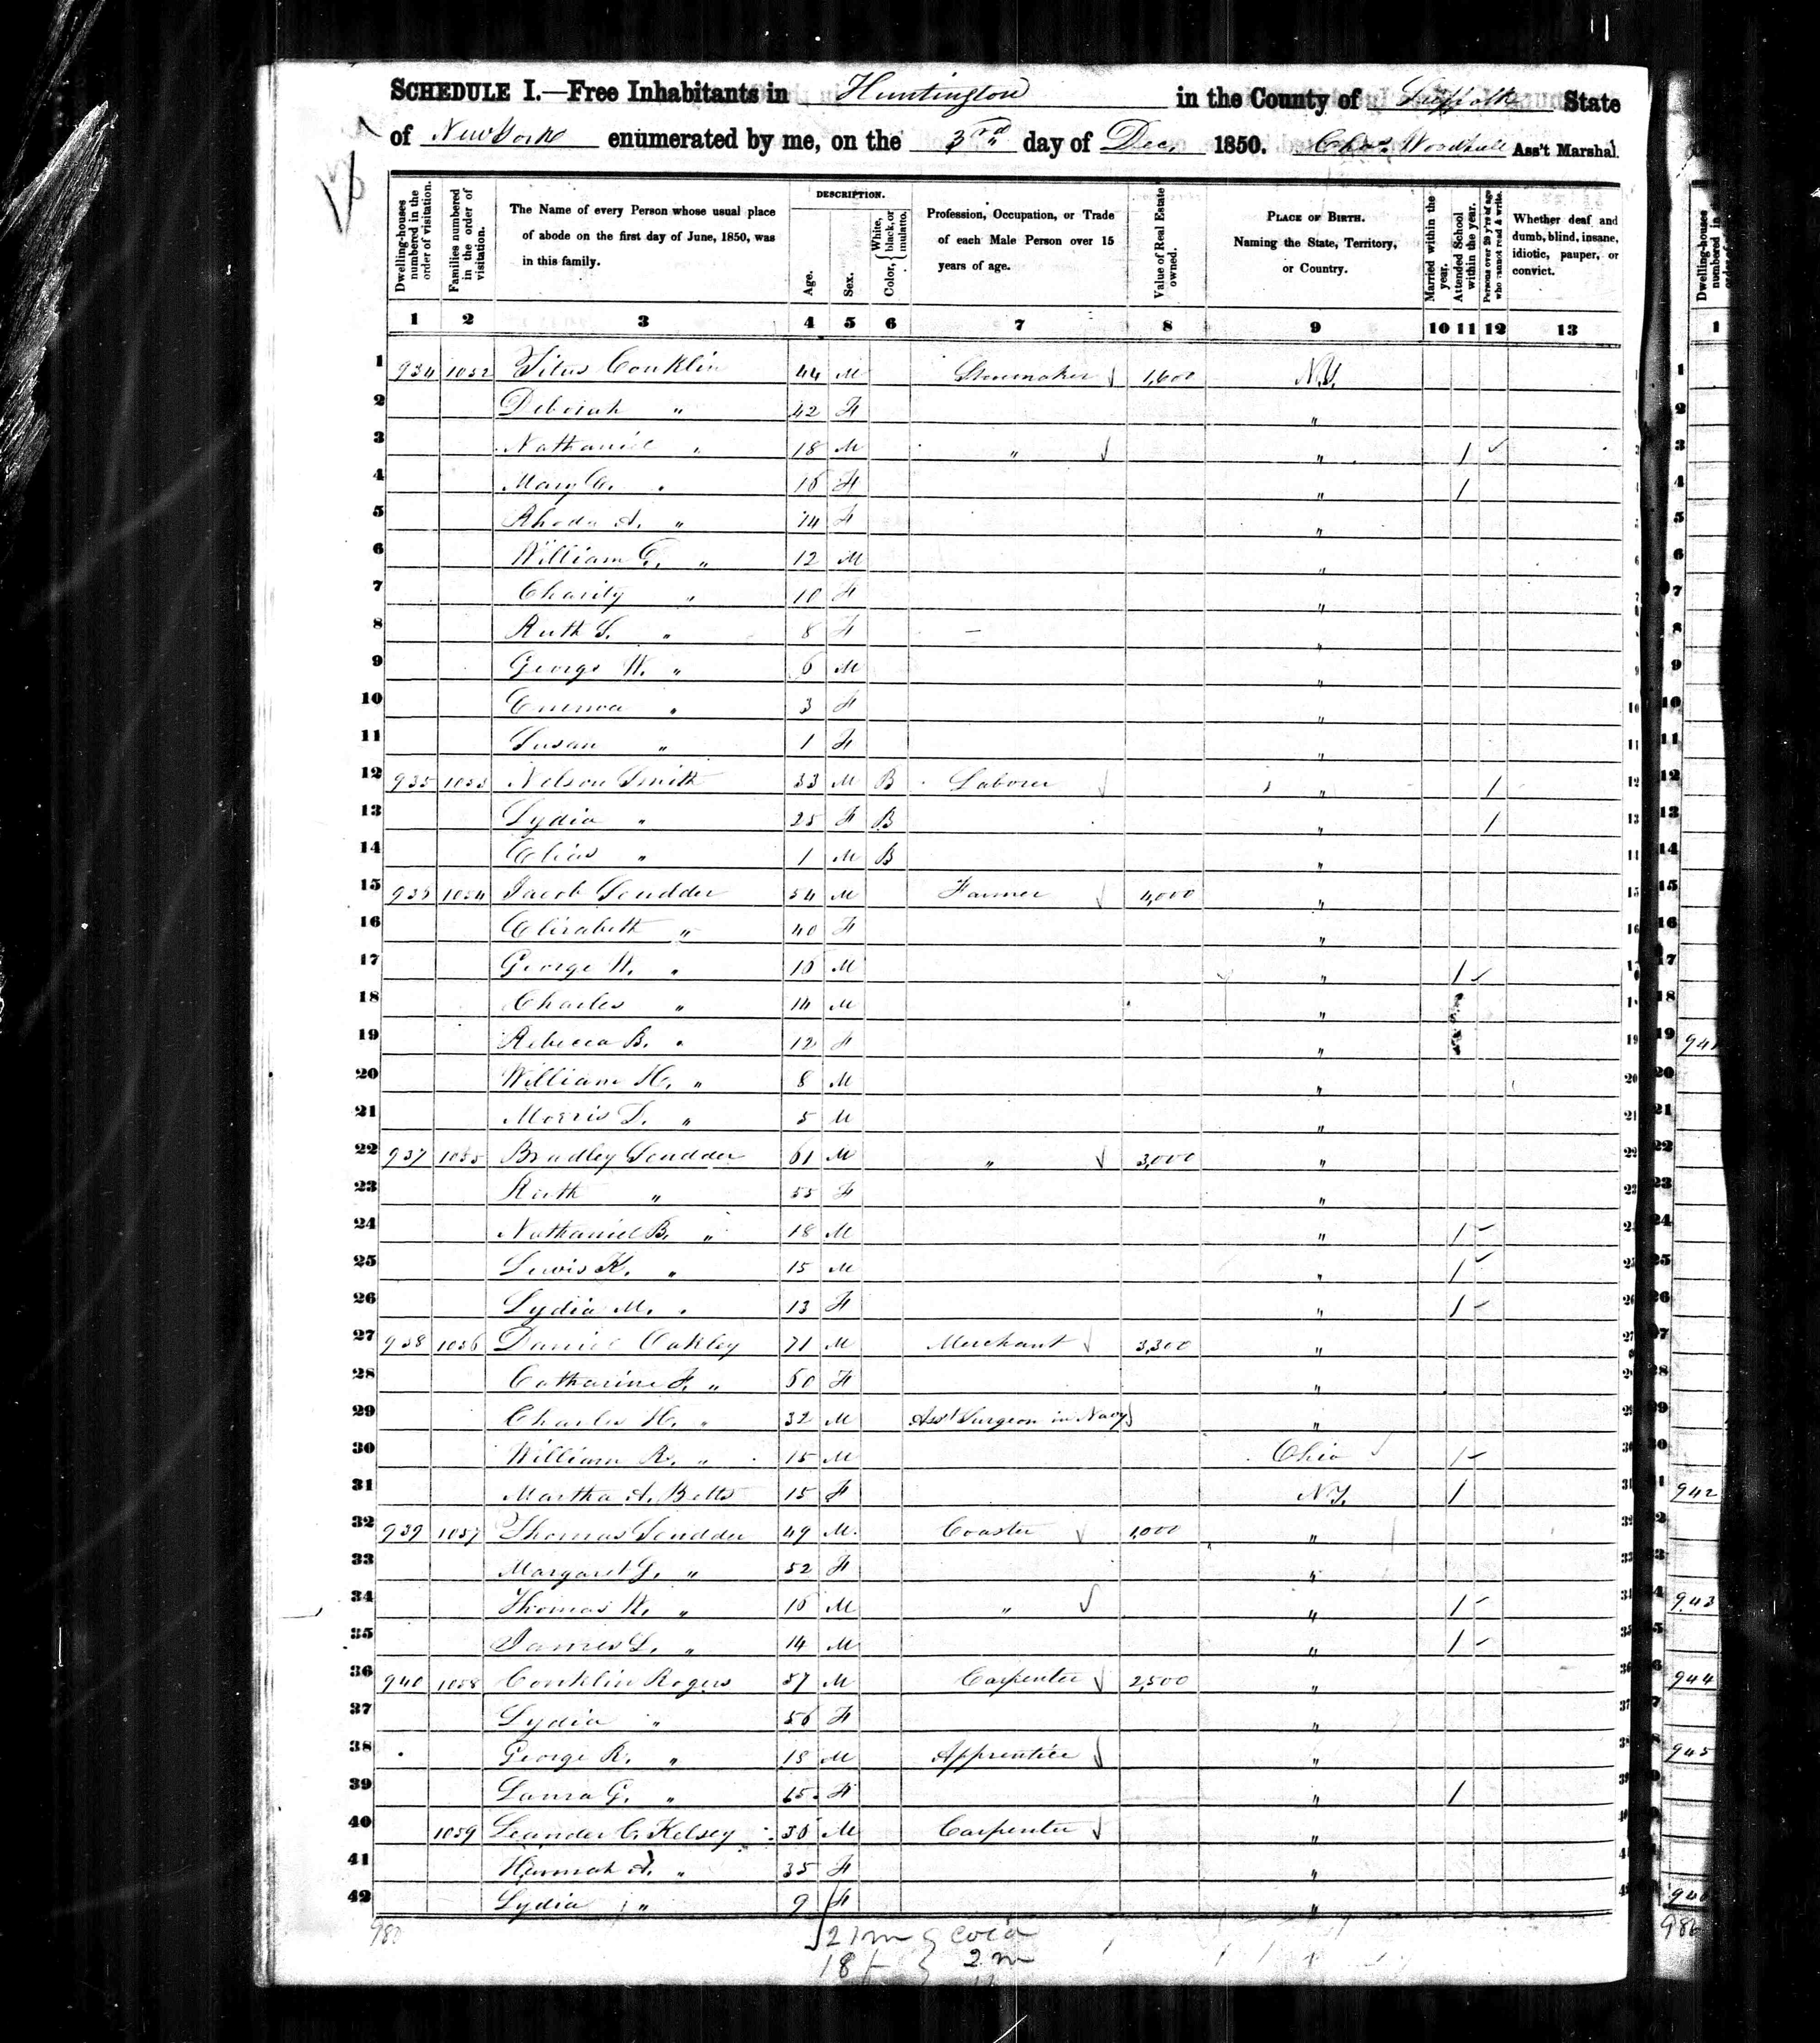 SCHEDULE I.—Free Inhabitants in Huntington in the County of Suffolk State
of New York enumerated by me, on the 3rd day of Dec. 1850. Chas. Woodhull Ass't Marshal.
Dwelling-houses numbered in the order of visitation.
Families numbered in the order of visitation.
The Name of every Person whose usual place of abode on the first day of June, 1850, was in this family.
DESCRIPTION.
Age.
Sex.
Color, { White, black, or mulatto.
Profession, Occupation, or Trade of each Male Person over 15 years of age.
Value of Real Estate owned.
PLACE OF BIRTH. Naming the State, Territory, or Country.
Married within the year.
Attended School within the year.
Persons over 20 y'rs of age who cannot read & write.
Whether deaf and dumb, blind, insane, idiotic, pauper, or convict.
1 2 3 4 5 6 7 8 9 10 11 12 13
1 934 1052 Titus Conklin 44 M Shoemaker 1,600 N.Y. 1
2 Deborah " 42 F " 2
3 Nathaniel " 18 M " " 1 3
4 Mary E. " 16 F " 1 4
5 Rhoda A. " 14 F " 5
6 William C. " 12 M " 6
7 Charity " 10 F " 7
8 Ruth S. " 8 F " 8
9 George W. " 6 M " 9
10 Emma " 3 F " 10
11 Susan " 1 F " 11
12 935 1053 Nelson Smith 33 M B Laborer " 1 12
13 Lydia " 25 F B " 1 13
14 Elias " 1 M B " 14
15 936 1054 Jacob Scudder 54 M Farmer 4,000 " 15
16 Elizabeth " 40 F " 16
17 George W. " 16 M " 1 17
18 Charles " 14 M " 18
19 Rebecca B. " 12 F " 19
20 William H. " 8 M " 20
21 Morris S. " 5 M " 21
22 937 1055 Bradley Scudder 61 M " 3,000 " 22
23 Ruth " 55 F " 23
24 Nathaniel B. " 18 M " 1 24
25 Lewis K. " 15 M " 1 25
26 Lydia M. " 13 F " 1 26
27 938 1056 Daniel Oakley 71 M Merchant 3,300 " 27
28 Catharine F. " 60 F " 28
29 Charles H. " 32 M Asst Surgeon in Navy " 29
30 William R. " 15 M Ohio 1 30
31 Martha A. Betts 15 F N.Y. 1 31
32 939 1057 Thomas Scudder 49 M. Coaster 1,000 " 32
33 Margaret S. " 52 F " 33
34 Thomas W. " 16 M " " 1 34
35 James S. " 14 M " 1 35
36 940 1058 Conklin Rogers 57 M Carpenter 2,500 " 36
37 Lydia " 56 F " 37
38 George R. " 18 M Apprentice " 38
39 Laura G. " 15 F " 1 39
40 1059 Leander C. Kelsey 36 M Carpenter " 40
41 Hannah A. " 35 F " 41
42 Lydia " 9 F " 42
21 m
18 f 2 m
Dwelling-houses numbered in
1
941
942
943
944
945